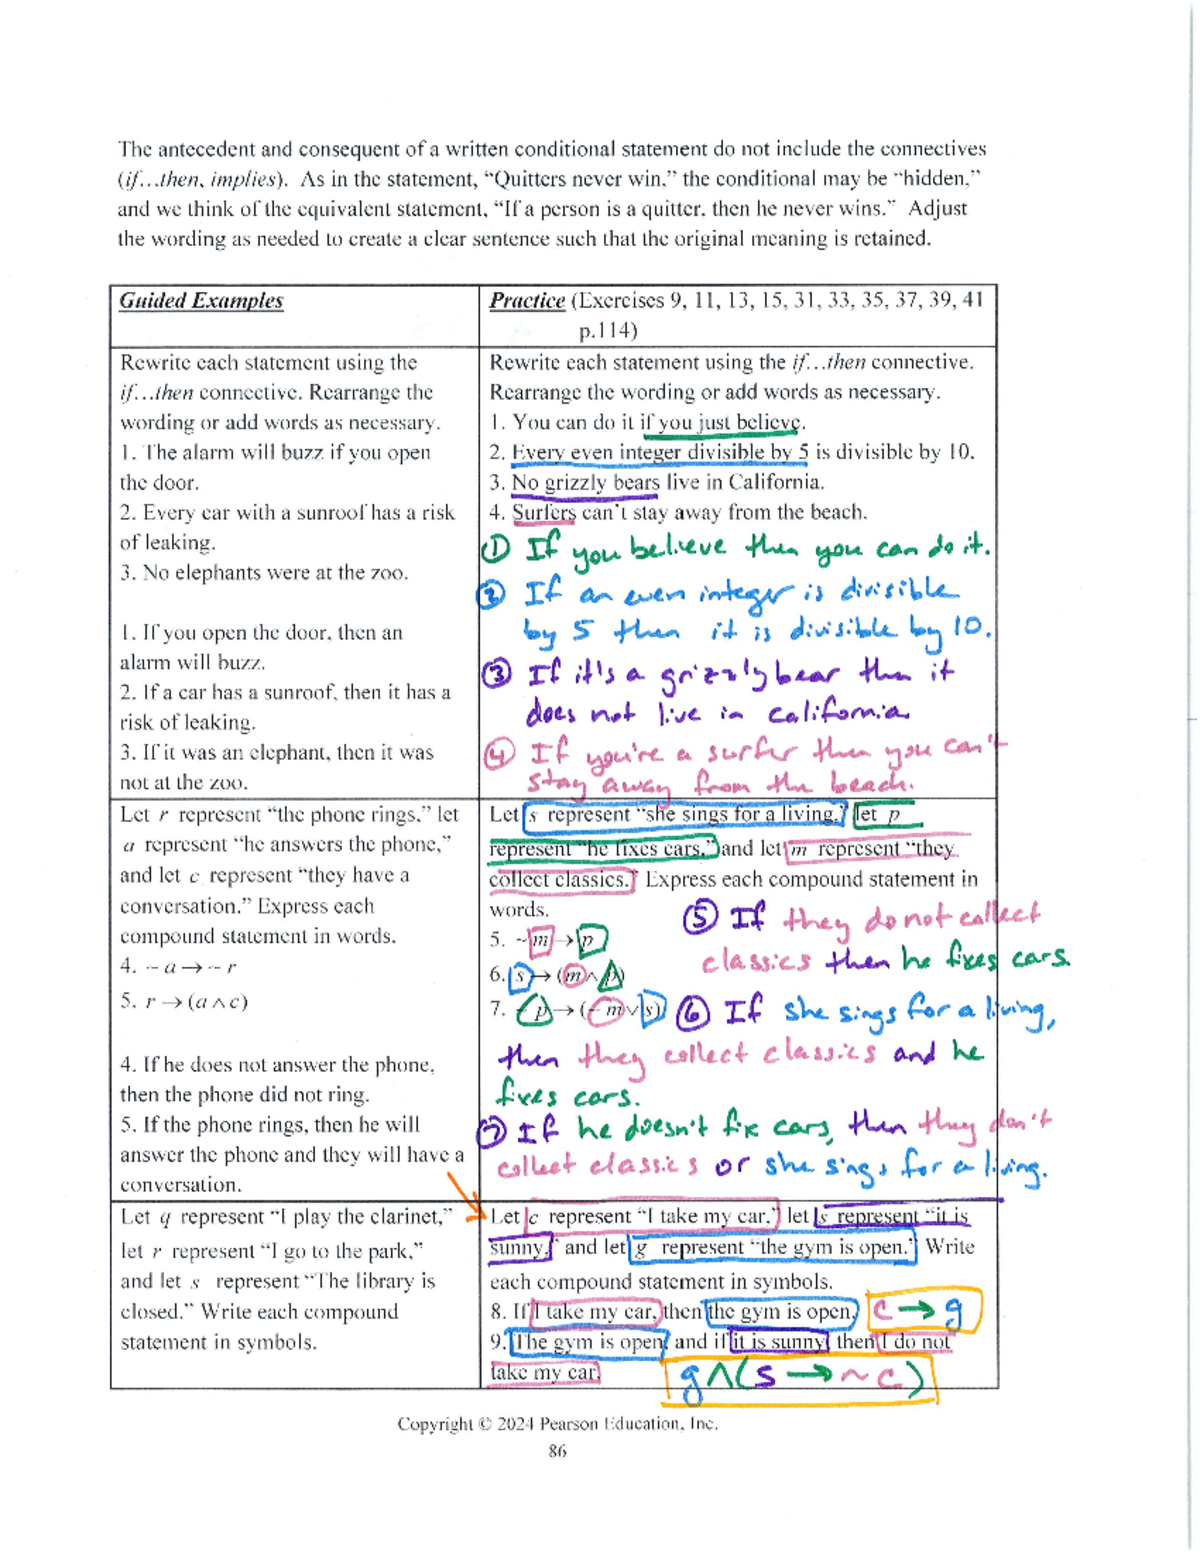 The antecedent and consequent of a written conditional statement do not include the connectives
(if…then, implies). As in the statement, “Quitters never win,” the conditional may be “hidden,”
and we think of the equivalent statement, “If a person is a quitter, then he never wins.” Adjust
the wording as needed to create a clear sentence such that the original meaning is retained.
Guided Examples
Rewrite each statement using the
if…then connective. Rearrange the
wording or add words as necessary.
1. The alarm will buzz if you open
the door.
2. Every car with a sunroof has a risk
of leaking.
3. No elephants were at the zoo.
1. If you open the door, then an
alarm will buzz.
2. If a car has a sunroof, then it has a
risk of leaking.
3. If it was an elephant, then it was
not at the zoo.
Practice (Exercises 9, 11, 13, 15, 31, 33, 35, 37, 39, 41
p.114)
Rewrite each statement using the if…then connective.
Rearrange the wording or add words as necessary.
1. You can do it if you just believe.
2. Every even integer divisible by 5 is divisible by 10.
3. No grizzly bears live in California.
4. Surfers can’t stay away from the beach.
① If you believe then you can do it.
② If an even integer is divisible
by 5 then it is divisible by 10.
③ If it's a grizzly bear then it
does not live in california.
④ If you're a surfer then you can't
stay away from the beach.
Let r represent “the phone rings,” let
a represent “he answers the phone,”
and let c represent “they have a
conversation.” Express each
compound statement in words.
4. ~ a → ~ r
5. r → (a ∧ c)
4. If he does not answer the phone,
then the phone did not ring.
5. If the phone rings, then he will
answer the phone and they will have a
conversation.
Let s represent “she sings for a living,” let p
represent “he fixes cars,” and let m represent “they
collect classics.” Express each compound statement in
words.
5. ~ m → p
6. s → (m ∧ p)
7. ~ p → (~ m ∨ s)
⑤ If they do not collect
classics then he fixes cars.
⑥ If she sings for a living,
then they collect classics and he
fixes cars.
⑦ If he doesn't fix cars, then they don't
collect classics or she sings for a living.
Let q represent “I play the clarinet,”
let r represent “I go to the park,”
and let s represent “The library is
closed.” Write each compound
statement in symbols.
Let c represent “I take my car,” let s represent “it is
sunny,” and let g represent “the gym is open.” Write
each compound statement in symbols.
8. If I take my car, then the gym is open. c → g
9. The gym is open, and if it is sunny then I do not
take my car. g ∧ (s → ~ c)
Copyright © 2024 Pearson Education, Inc.
86